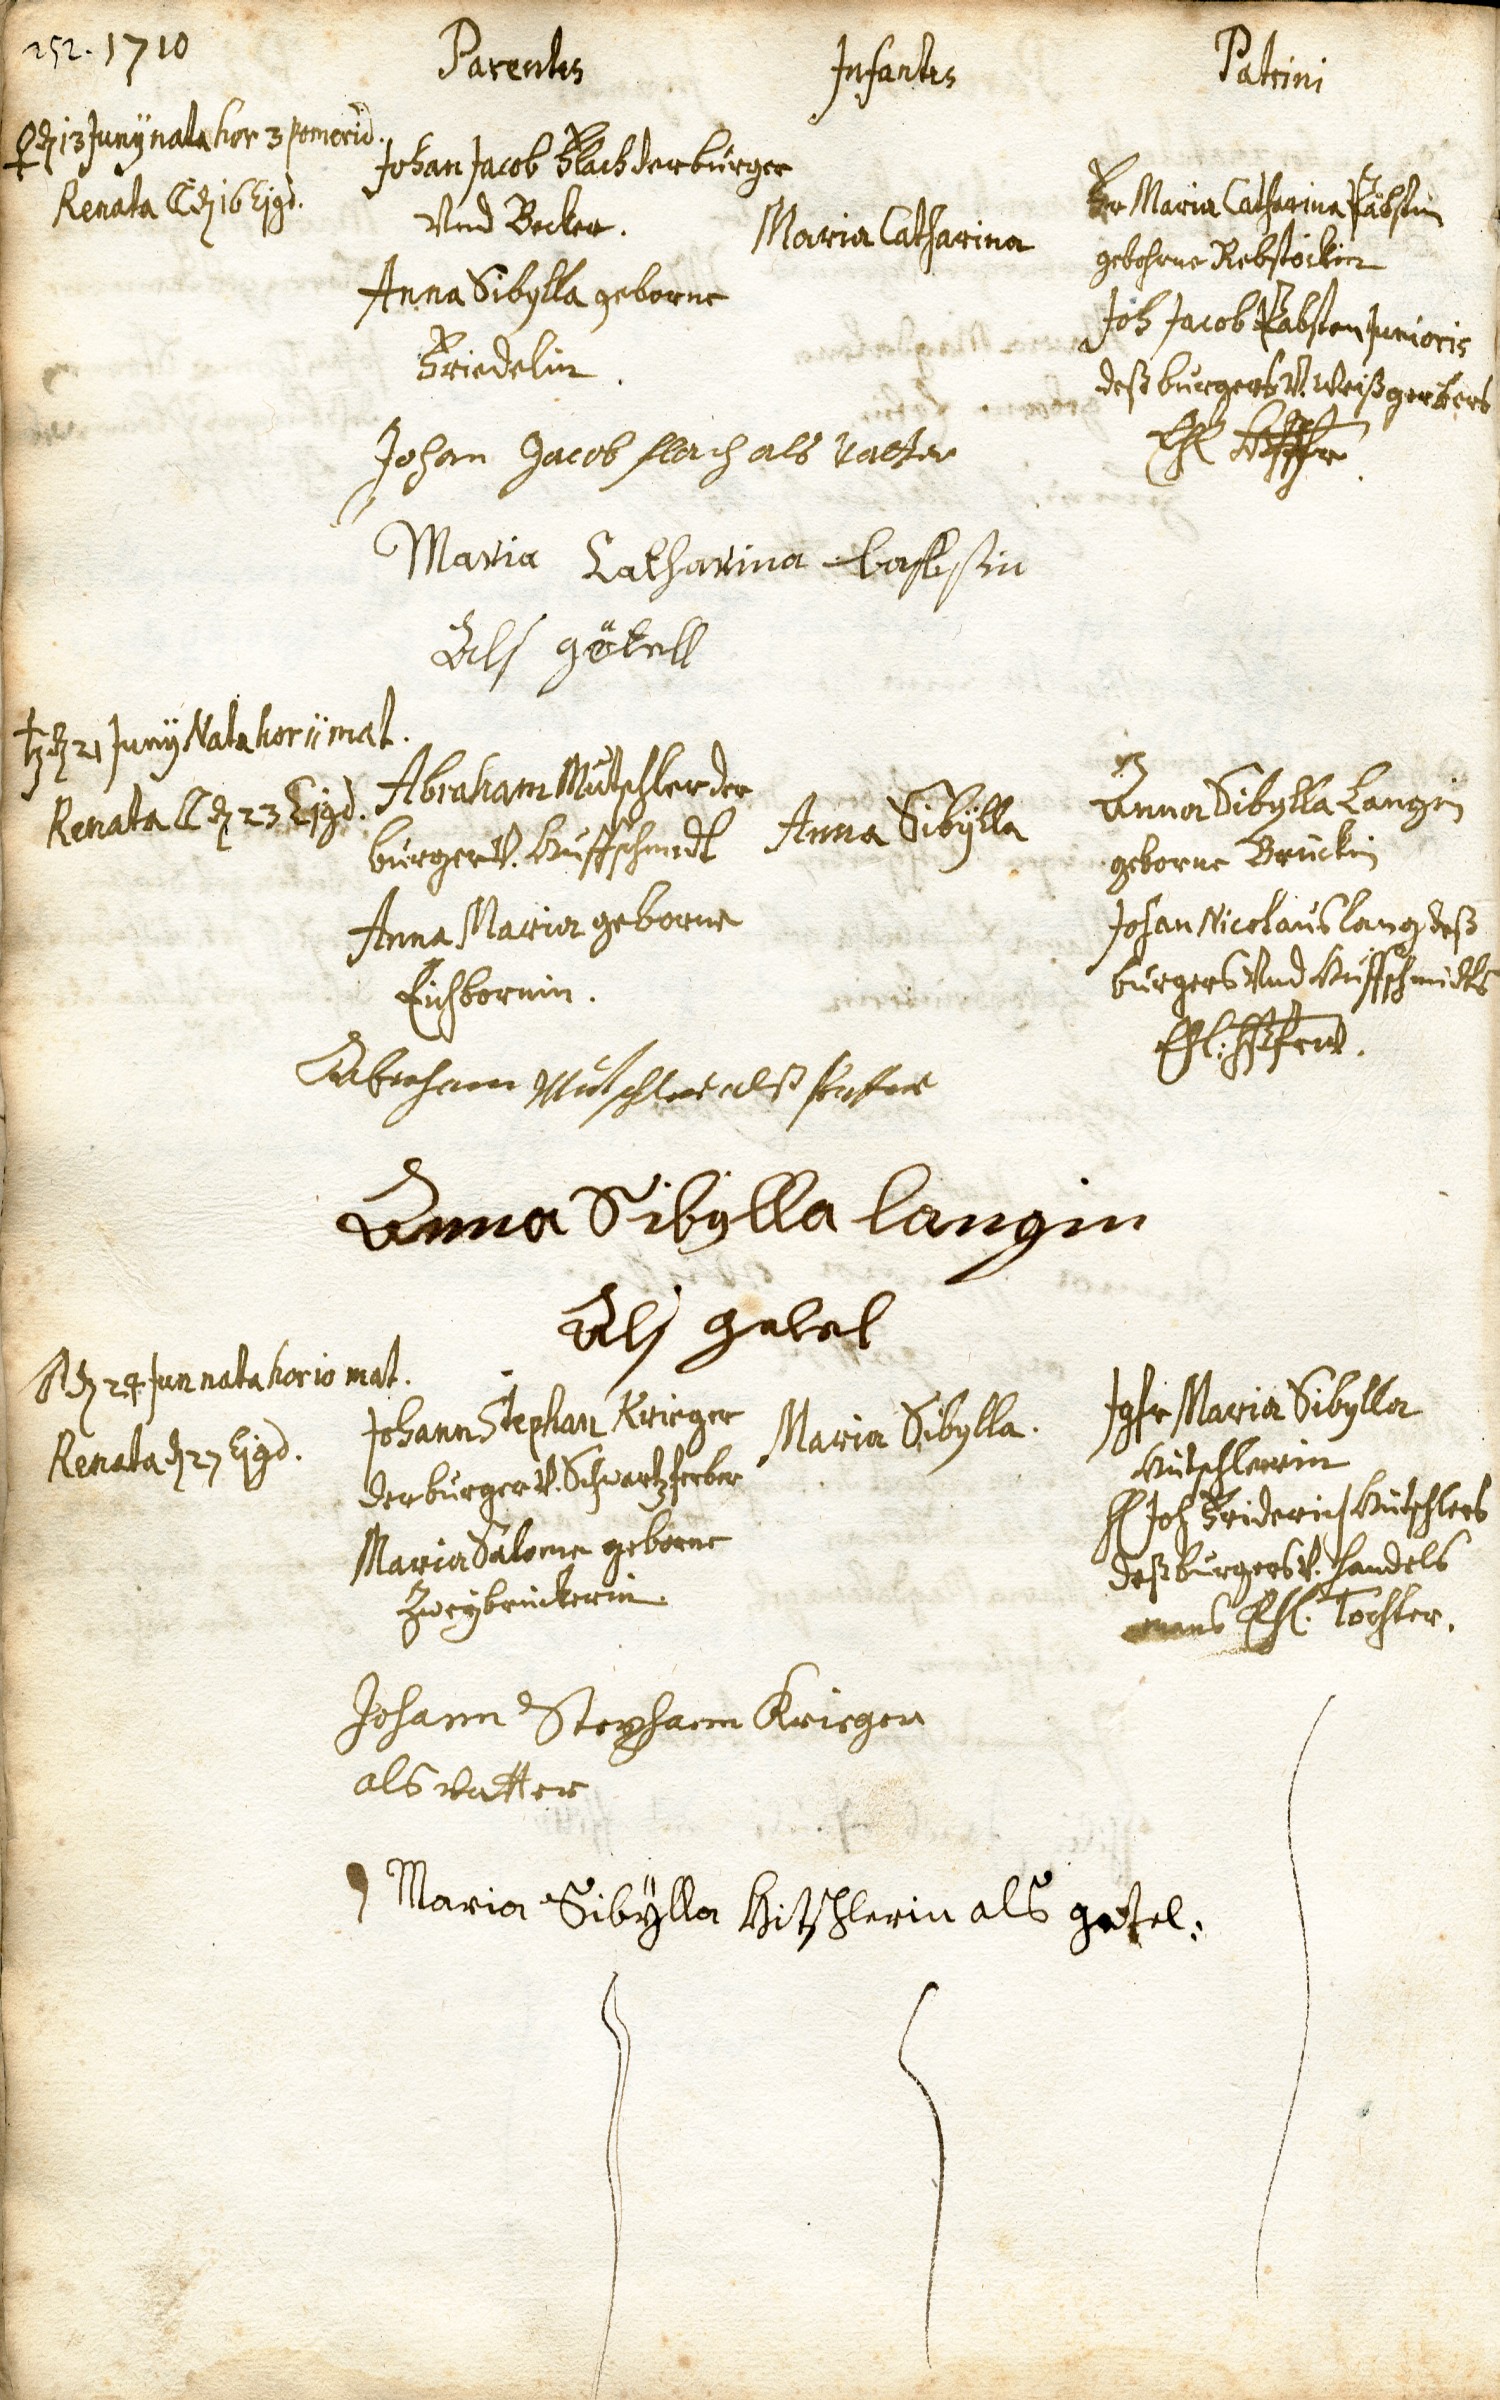 252. 1710
Parentes Infantes Patrini
♀ d 13 Junÿ nata hor 3 pomerid.
Renata ☾ d 16 Ejqd.
Johan Jacob Flach der burger
Vnd Becker.
Anna Sibylla geborne
Friedelin.
Maria Catharina
Fr Maria Catharina Päbstin
gebohrne Rebstöckin
Joh Jacob Pabsten Junioris
deß burgers V. Weißgerbers
Ehl
Johan Jacob flach als Vatter
Maria Catharina
Alß götell
♄ d 21 Junÿ Nata hor 11 mat.
Renata ☾ d 23 Ejqd.
Abraham Mütschler der
burger V. Huffschmidt
Anna Maria geborne
Eichbornin.
Anna Sibÿlla
Fr
Anna Sibylla Langin
geborne Bruckin
Johan Nicolaus Lang deß
burgers Vnd Huffschmidts
Ehl. haußfraw.
Abraham Mütschler alß Vatter
Anna Sibylla langin
Alß getel
♂ d 24 Jun nata hor 10 mat.
Renata d 27 Ejqd.
Johann Stephan Krieger
der burger V. Schwartzferber
Maria Salome geborne
Zweybrückerin.
Maria Sibylla.
Jgfr Maria Sibylla
Hütschlerin
H Joh Friderich Hütschlers
deß burgers V. handels
mans Ehl. Tochter.
Johann Stephann Krieger
als vatter
Maria Sibÿlla Hitschlerin als götel: